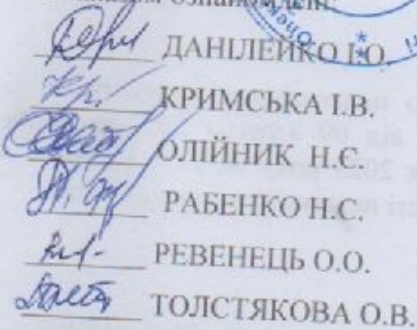 ДАНІЛЕЙКО І.О.
КРИМСЬКА І.В.
ОЛІЙНИК Н.Є.
РАБЕНКО Н.С.
РЕВЕНЕЦЬ О.О.
ТОЛСТЯКОВА О.В.